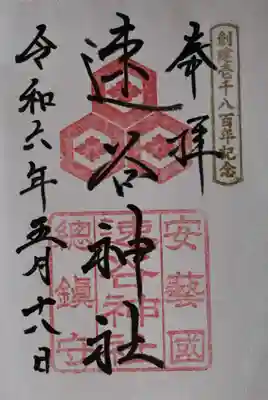 創建壱千八百年記念
奉拝
速谷神社
安藝國
速谷神社
総鎮守
令和六年五月十八日